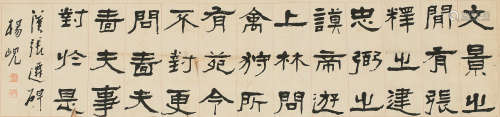 文景之
閒有張
釋之建
忠弼之
謨帝遊
上林問
禽狩所
有苑令
不對更
問嗇夫
嗇夫事
對於是
漢張遷碑
楊峴